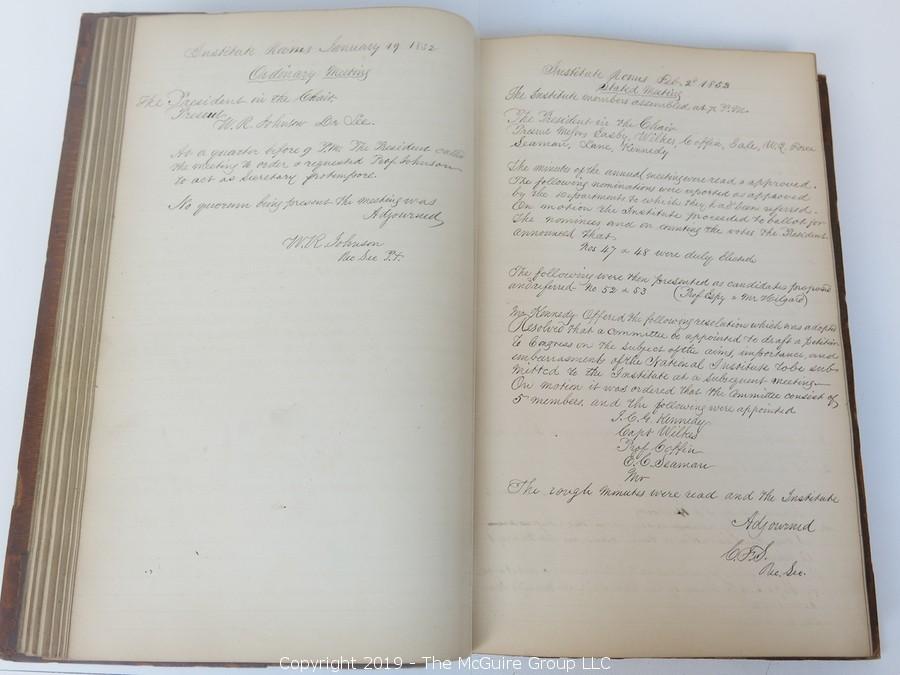 Institute Rooms January 19 1852
Ordinary Meeting
The President in the Chair
Present
W. R. Johnson Dr See.
At a quarter before 9 P.M. The President called
the meeting to order & requested Prof Johnson
to act as Secretary protempore.
No quorum being present the meeting was
Adjourned
W. R. Johnson
Rec Sec P.t.
Institute Rooms Feb. 2d 1852
Stated Meeting
The Institute members assembled at 7 P.M.
The President in the Chair
Present Messrs Easby, Wilkes, Coffin, Gale, W. Q. Force
Seaman, Lane, Kennedy
The minutes of the annual meeting were read & approved.
The following nominations were reported as approved
by the Departments to which they had been referred.
On motion the Institute proceeded to ballot for
the nominees and on counting the votes the President
announced that
Nos 47 & 48 were duly Elected
The following were then presented as candidates proposed
and referred No 52 & 53 (Prof Espy & Mr Hilgard)
Mr Kennedy Offered the following resolution which was adopted
Resolved that a committee be appointed to draft a petition
to Congress on the subject of the aims, importance, and
embarrasments of the National Institute to be sub-
mitted to the Institute at a subsequent meeting—
On motion it was ordered that the Committee consist of
5 members, and the following were appointed
J. C. G. Kennedy
Capt Wilkes
Prof Coffin
E. C. Seaman
Mr
The rough minutes were read and the Institute
Adjourned
C. F. S.
Rec. Sec.
Copyright 2019 - The McGuire Group LLC